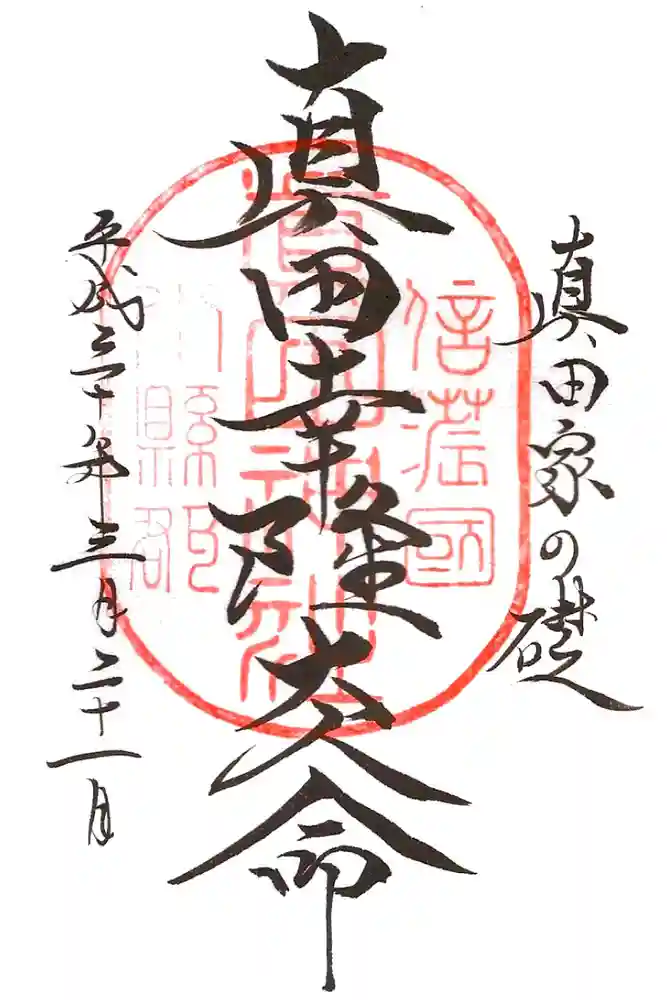 真田家の礎
真田幸隆大人命
平成三十年三月二十一日
信濃國
眞田神社
小縣郡